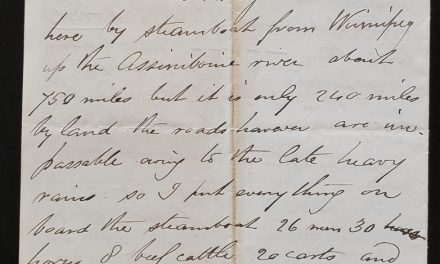 here by steamboat from Winnipeg
up the Assiniboine river about
750 miles but it is only 240 miles
by land the roads however are im-
passable owing to the late heavy
rains. so I put everything on
board the steamboat 26 men 30
horses 8 beef cattle 20 carts and